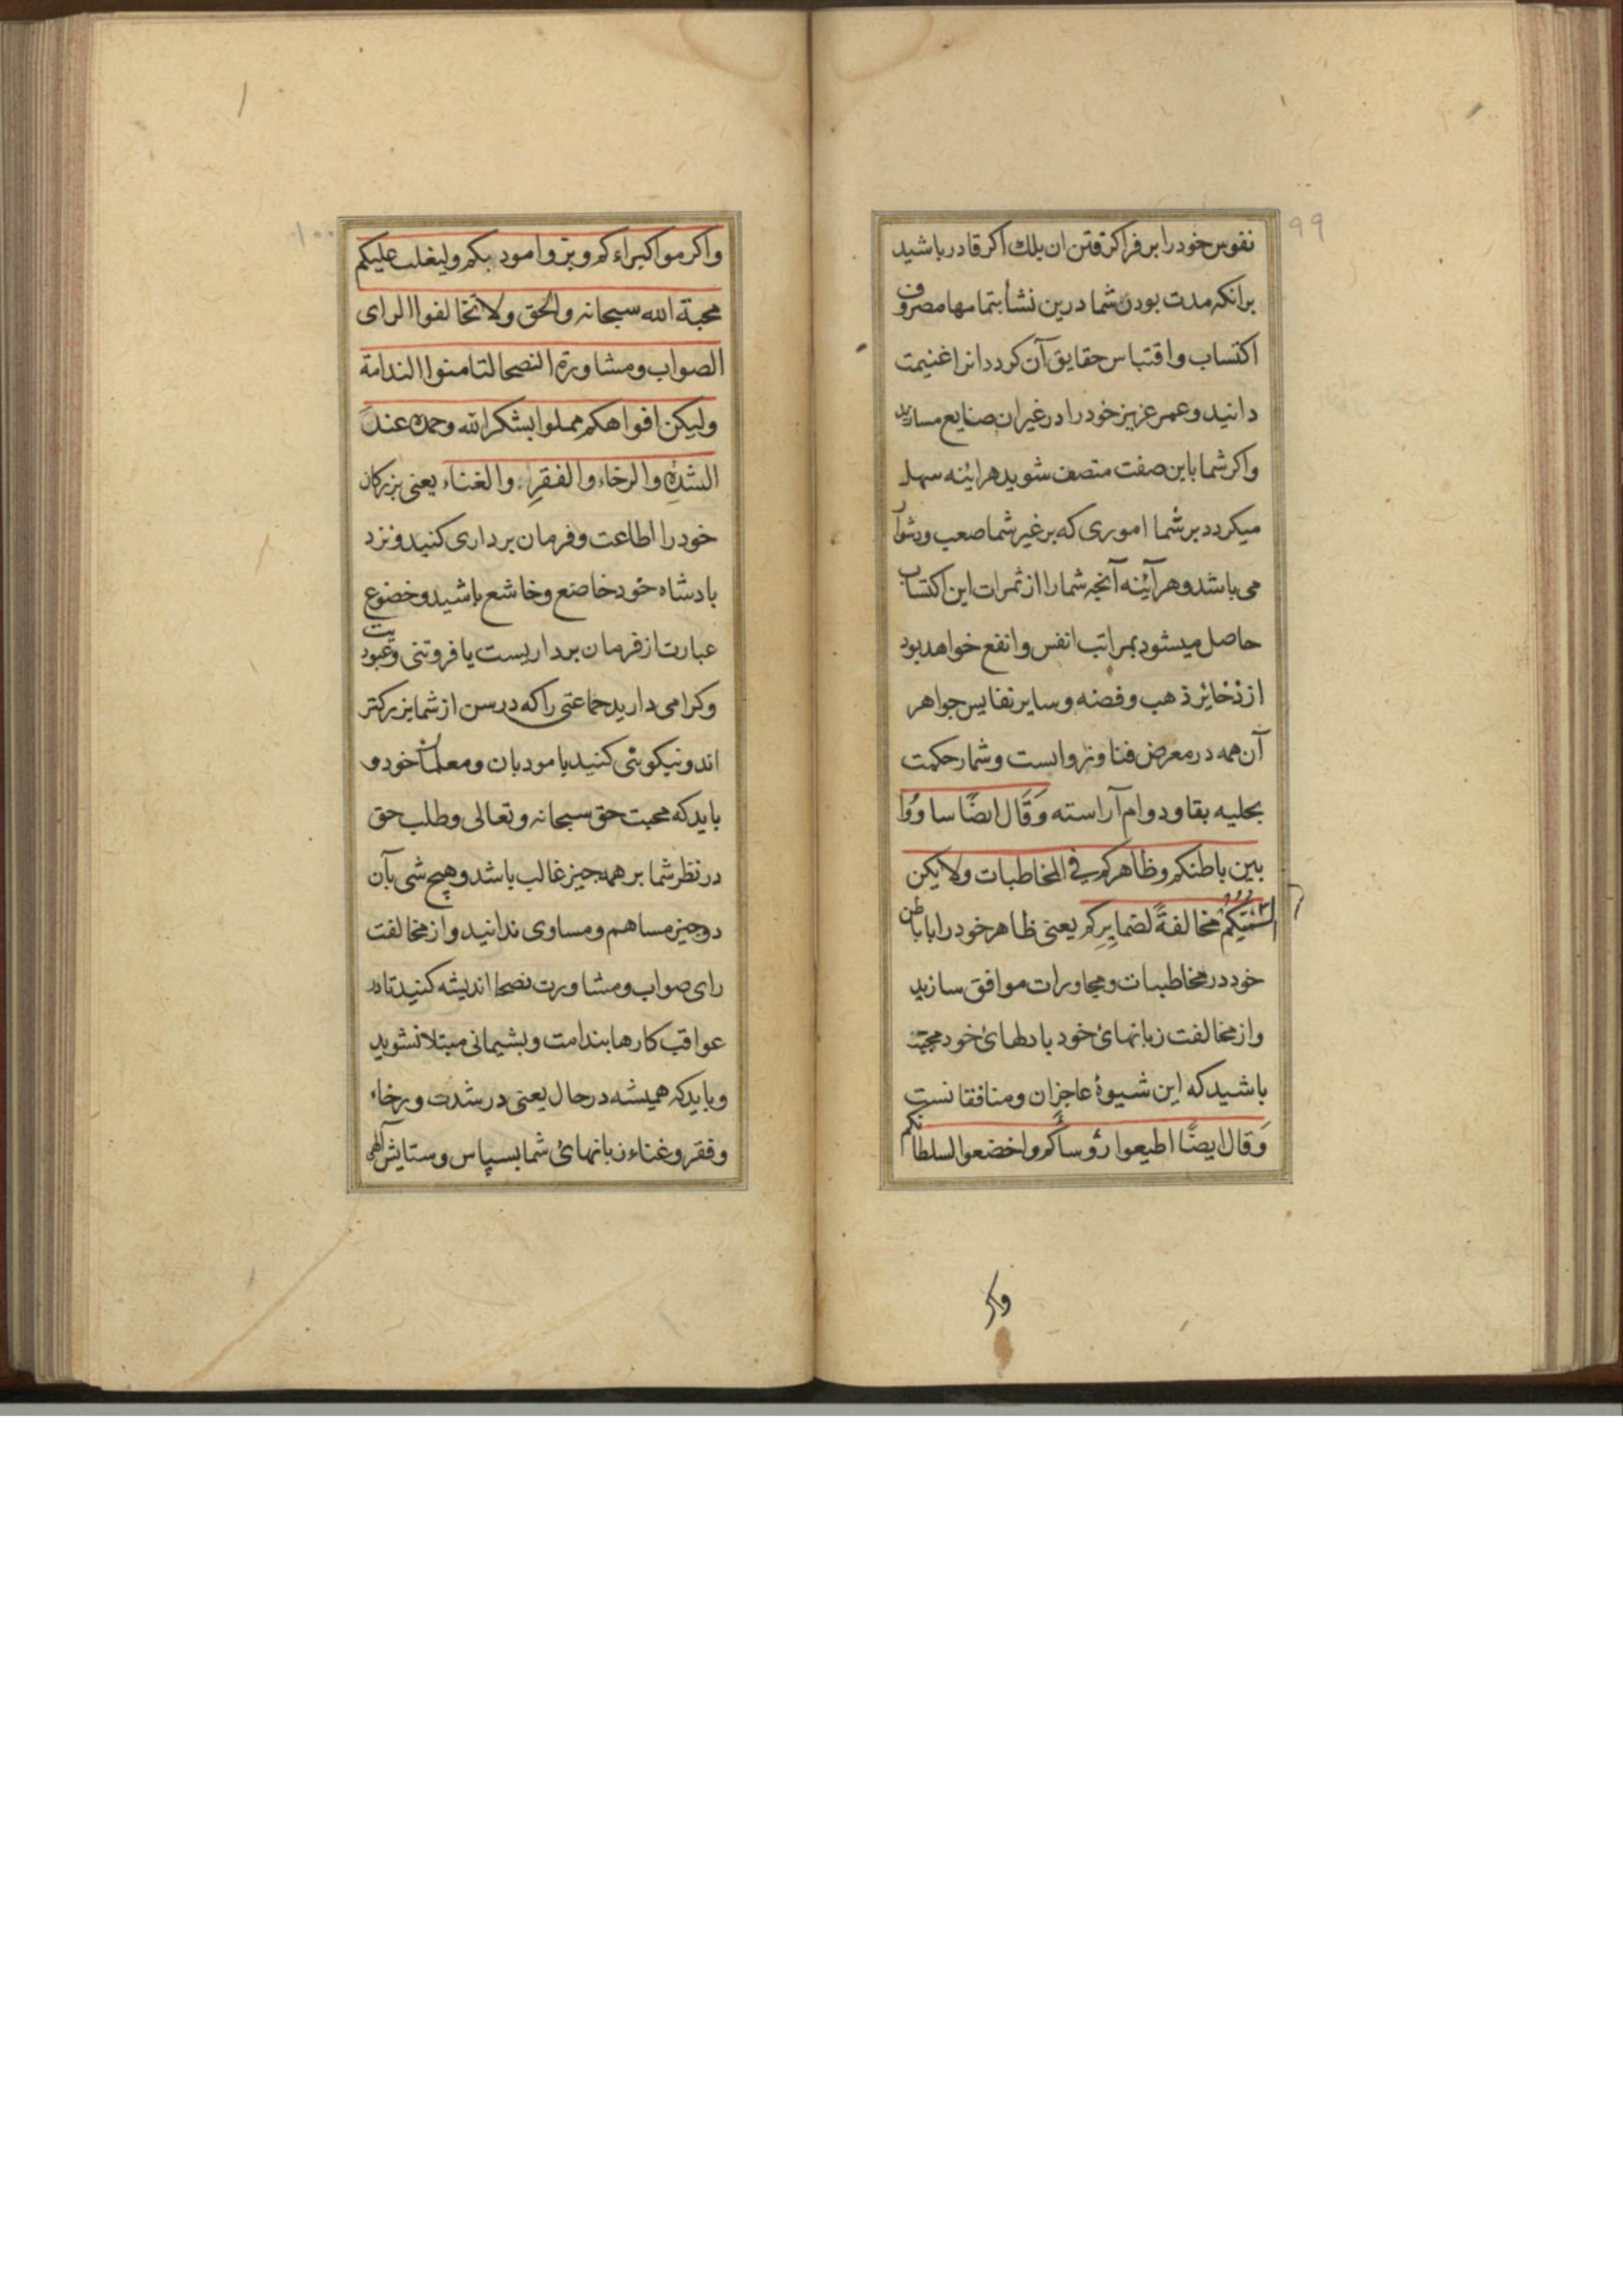 ۹۹
نفوس خود را بر فرا کرفتن ان بلك اکر قادر باشید
برانکه مدت بودن شما درین نشأ بتمامها مصروف
اکتساب و اقتباس حقایق آن کردد انرا غنیمت
دانید و عمر عزیز خود را در غیر ان صنایع مسازید
و اکر شما باین صفت متصف شوید هراینه سهل
میکردد بر شما اموری که بر غیر شما صعب و دشوار
می باشد و هرآینه آنچه شما را از ثمرات این اکتساب
حاصل میشود بمراتب انفس و انفع خواهد بود
از ذخایر ذهب و فضه و سایر نفایس جواهر
آن همه در معرض فنا و زوالست و شمار حکمت
بحلیه بقا و دوام آراسته وَقَال ایضًا ساووا
بین باطنکم و ظاهرکم في المخاطبات ولا یکن
السنتکم مخالفةً لضمایرکم یعنی ظاهر خود را با باطن
خود در مخاطبات و مجاورات موافق سازید
و از مخالفت زبانهای خود با دلهای خود مجتنب
باشید که این شیوهٔ عاجزان و منافقانست
وَقال ایضًا اطیعوا رؤساکم واخضعوا لسلطانکم
واکر
۱۰۰
واکرموا کبراءکم وبروا مودبکم ولیغلب علیکم
محبة الله سبحانه والحق ولا تخالفوا الرای
الصواب ومشاورة النصحا لتامنوا الندامة
ولیکن افواهکم مملوا بشکر الله وحمده عند
الشدة والرخاء والفقر والغناء یعنی بزرکان
خود را اطاعت و فرمان برداری کنید و نزد
بادشاه خود خاضع و خاشع باشید و خضوع
عبارت از فرمان برداریست یا فروتنی و عبودیت
و کرامی دارید جماعتی را که در سن از شما بزرکتر
اند و نیکوئی کنید با مودبان و معلمان خود و
باید که محبت حق سبحانه و تعالی و طلب حق
در نظر شما بر همه چیز غالب باشد و هیچ شی بآن
دو چیز مساهم و مساوی ندانید و از مخالفت
رای صواب و مشاورت نصحا اندیشه کنید تا در
عواقب کارها بندامت و پشیمانی مبتلا نشوید
و باید که همیشه در حال یعنی در شدت و رخاء
و فقر و غناء زبانهای شما بسپاس و ستایش الهی